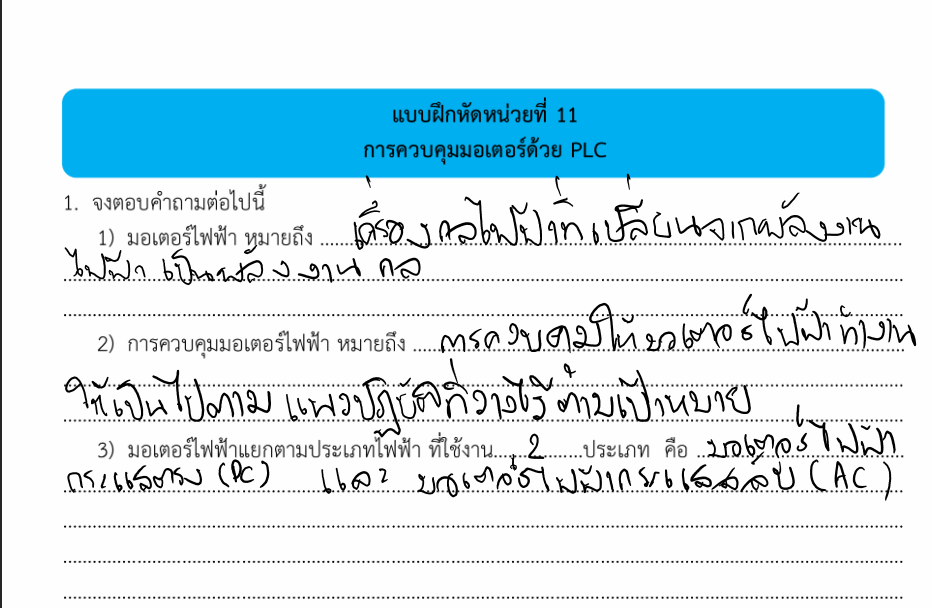 แบบฝึกหัดหน่วยที่ 11
การควบคุมมอเตอร์ด้วย PLC
1. จงตอบคำถามต่อไปนี้
1) มอเตอร์ไฟฟ้า หมายถึง เครื่องกลไฟฟ้าที่เปลี่ยนจากพลังงาน
ไฟฟ้า เป็นพลังงาน กล
2) การควบคุมมอเตอร์ไฟฟ้า หมายถึง การควบคุมให้มอเตอร์ไฟฟ้าทำงาน
ให้เป็นไปตาม แผนปฏิบัติที่วางไว้ ตามเป้าหมาย
3) มอเตอร์ไฟฟ้าแยกตามประเภทไฟฟ้า ที่ใช้งาน 2 ประเภท คือ มอเตอร์ไฟฟ้า
กระแสตรง (DC) และ มอเตอร์ไฟฟ้ากระแสสลับ (AC)